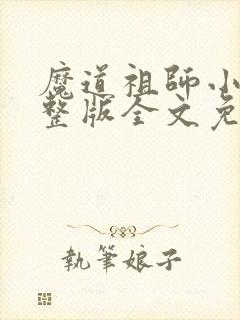 魔道祖師小
整版全文免
執筆娘子